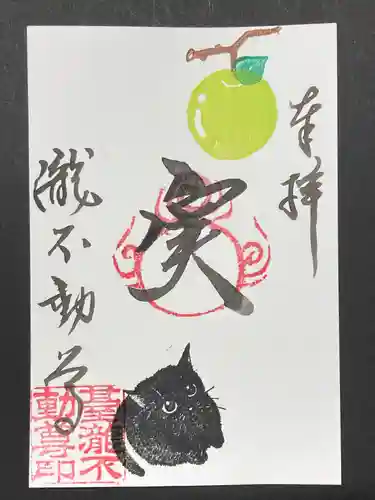 奉拝
実
瀧不動尊
墓瀧不
動尊印